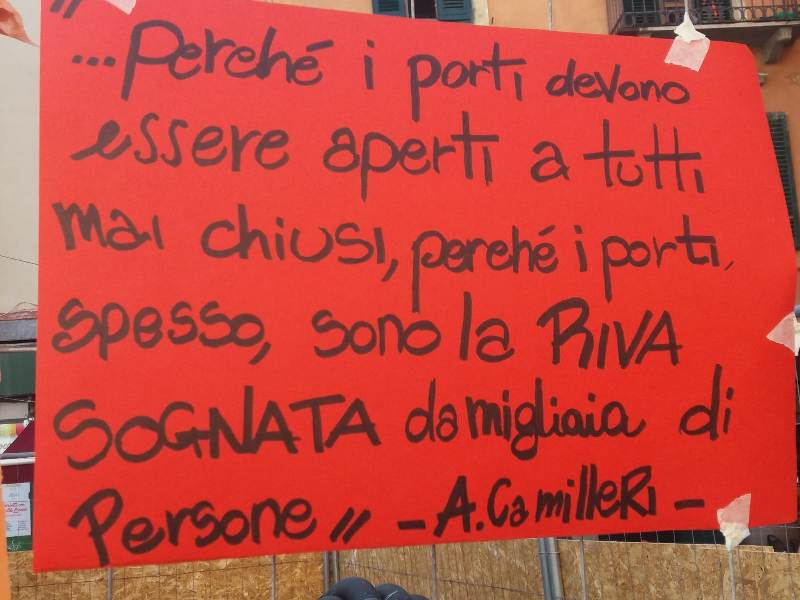 "...Perché i porti devono
essere aperti a tutti
mai chiusi, perché i porti,
spesso, sono la RIVA
SOGNATA da migliaia di
Persone" - A. CamilleRi -